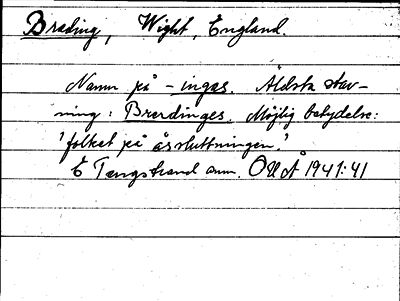 Brading, Wight, England.
Namn på -ingas. Äldsta stav-
ning: Brerdinges. Möjlig betydelse:
'folket på åssluttningen.'
E Tengstrand anm. OUÅ 1941:41